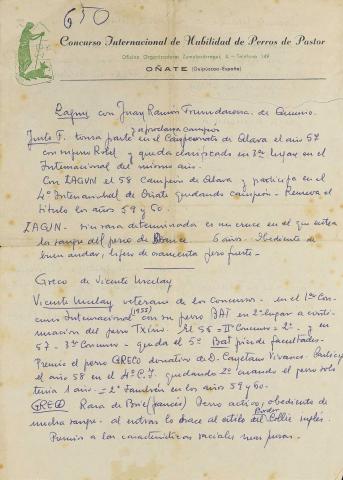 650
Concurso Internacional de Habilidad de Perros de Pastor
Oficina Organizadora: Zumalacárregui, 4 - Teléfono 149
OÑATE (Guipúzcoa-España)
Lagun con Juan Ramón de
y aproclama campeón
Justo F. toma parte en el Campeonato de Alava el año 57
con su perro y queda clasificado en 3er lugar en el
Internacional del mismo año.
Con LAGUN el 58 Campeón de Alava y participa en el
4º Internacional de Oñate quedando campeón - Renueva el
título los años 59 y 60.
LAGUN - sin raza determinada es un cruce en el que entra
la sangre del perro de 6 años. Obediente de
buen andar, ligero de osamenta pero fuerte.
Greco de Vicente Urcelay
Vicente Urcelay veterano de los Concursos. en el 1er Con-
curso Internacional (1955) con su perro BAT en 2º lugar a conti-
nuación del perro Txino. El 56 = IIº Concurso = 2º. y en
57 - 3er Concurso = queda el 5º Bat pierde facultades.
Premio el perro GRECO donativo de D. Cayetano Vivanco. Participa
el año 58 en el 4º C.I. quedando 2º cuando el perro solo
tenía 1 año. = 2º también en los años 59 y 60.
GRECO Raza de Brie (francés) Perro activo, obediente de
mucha sangre. al entrar lo hace al estilo del Border Collie inglés.
Premio a las características raciales mas puras.